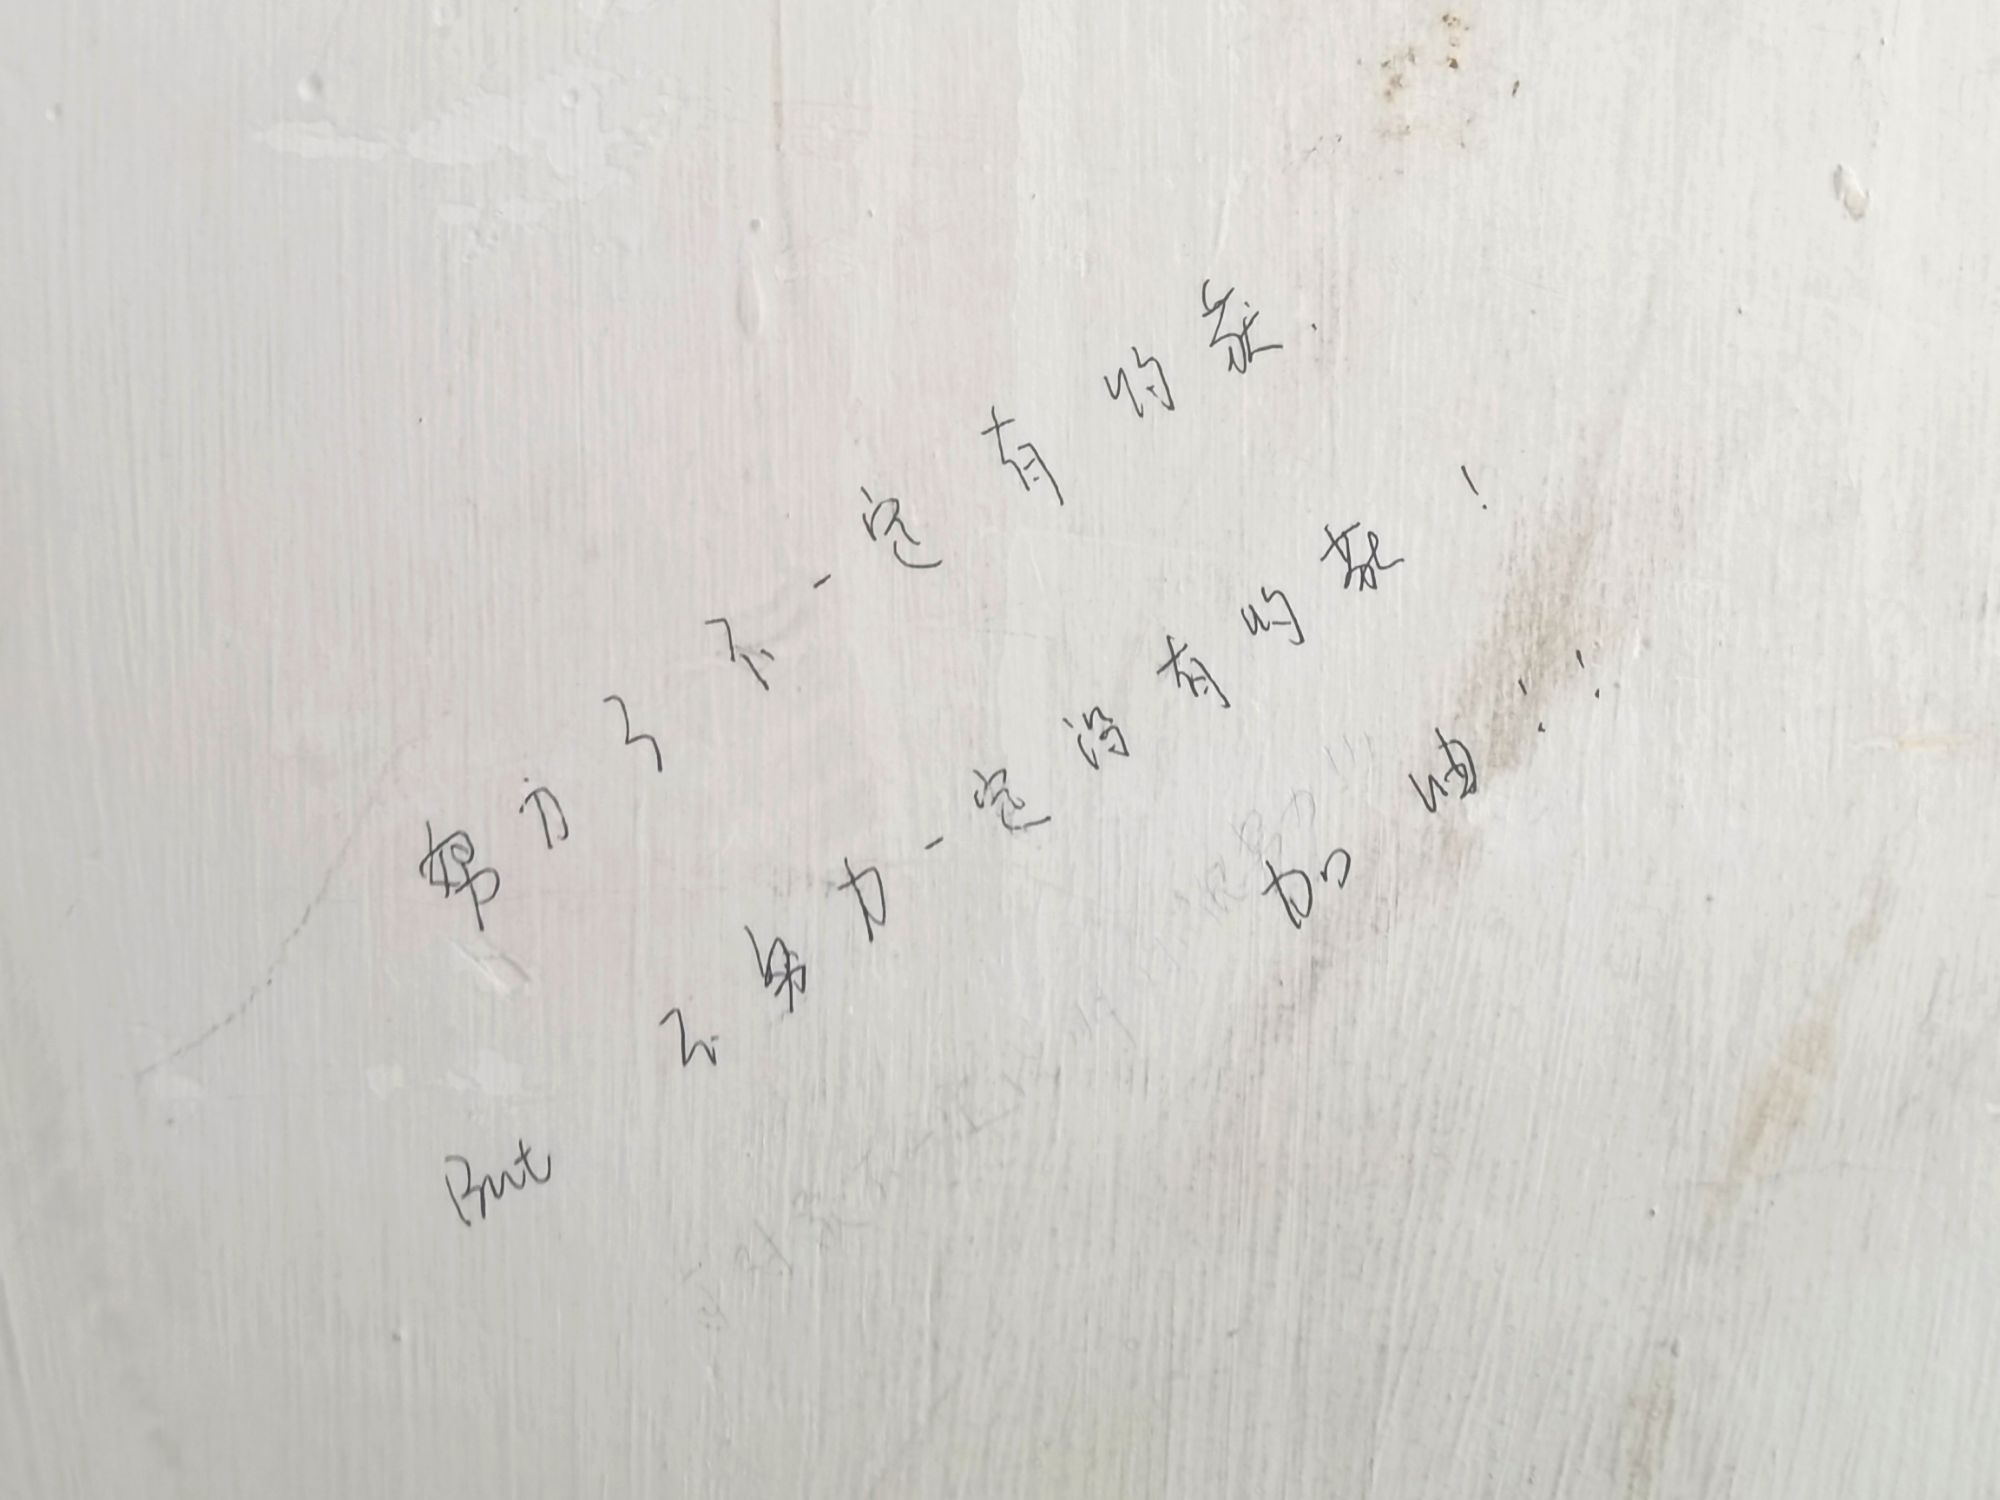 努力了不一定有收获.
But 不努力一定没有收获!
加油!!